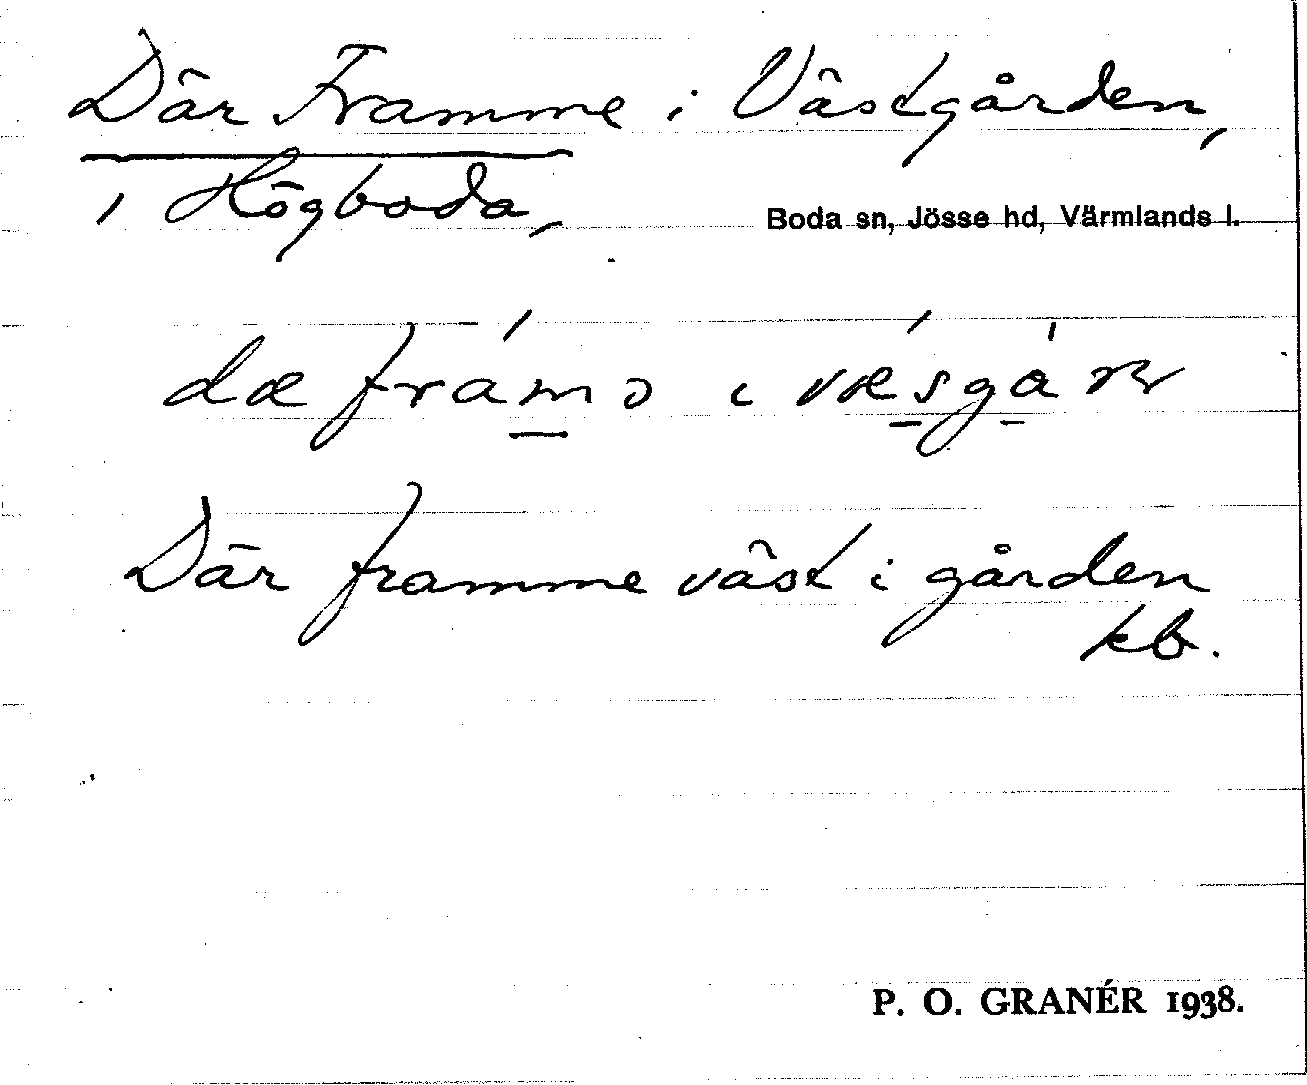 Där Framme i Västgården,
i Högboda,
Boda sn, Jösse hd, Värmlands l.
dæ framə i væsgaɴ
Där framme väst i gården
kb.
P. O. GRANÉR 1938.